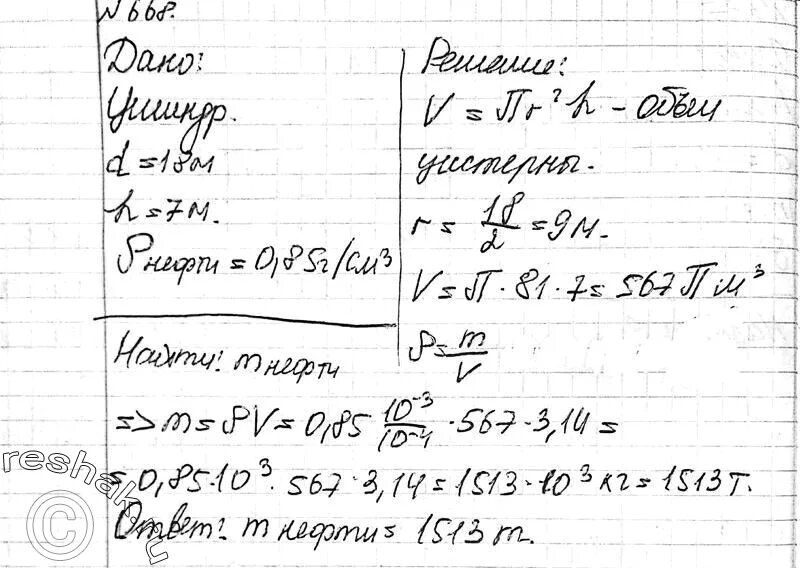 №668.
Дано:
Цилиндр.
d = 18м
h = 7м.
ρ нефти = 0,85г/см³
Найти: m нефти
Решение:
V = Пr²h - объём
цистерны.
r = 18/2 = 9м.
V = П · 81 · 7 = 567 П м³
ρ = m/V
=> m = ρV = 0,85 10⁻³/10⁻⁴ · 567 · 3,14 =
= 0,85·10³ · 567 · 3,14 = 1513 · 10³ кг = 1513 т.
Ответ: m нефти = 1513 т.
reshak.ru
©